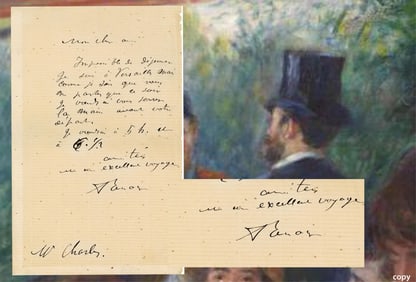 Mon cher ami
Impossible de déjeuner
je suis à Versailles mais
comme je sais que vous
ne partez que ce soir
je viendrai vous serrer
la main avant votre
départ.
Je viendrai à 5 h. et
à 6.½
amitiés
excellent voyage
Renoir
Mr Charles.
amitiés
excellent voyage
Renoir
copy